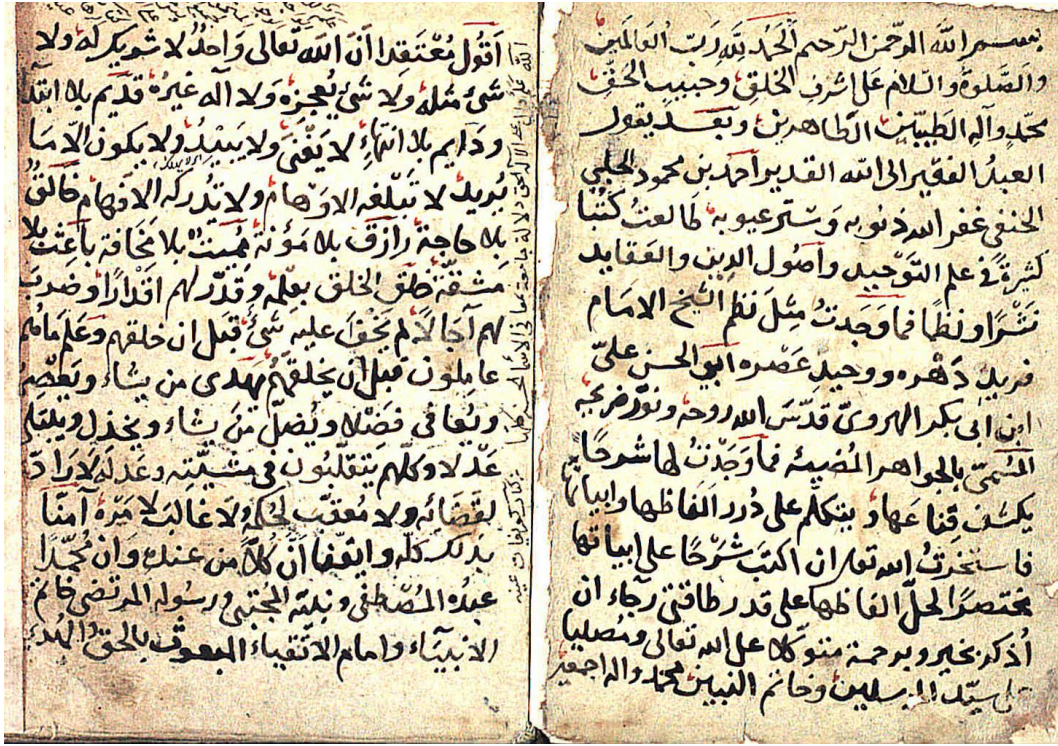 بسم الله الرحمن الرحيم الحمد لله رب العالمين
والصلوة والسلام على اشرف الخلق وحبيب الحق
محمد وآله الطيبين الطاهرين وبعد يقول
العبد الفقير الى الله القدير احمد بن محمود الحلبي
الحنفي غفر الله ذنوبه وستر عيوبه طالعت كتبا
كثيرة في علم التوحيد واصول الدين والعقايد
نثرا ونظما فما وجدت مثل نظم الشيخ الامام
فريد دهره ووحيد عصره ابي الحسن علي
ابن ابى بكر الهروي قدس الله روحه ونور ضريحه
المسمى بالجواهر المضيئه فما وجدت لها شرحا
يكشف قناعها ويتكلم على درر الفاظها وابياتها
فاستخرت الله تعالى ان اكتب شرحا على ابياتها
مختصرا لحل الفاظها على قدر طاقتي رجاء ان
أذكر بخير وبرحمة متوكلا على الله تعالى ومصليا
على سيد المرسلين وخاتم النبيين محمد واله اجمعين
اقول معتقدا ان الله تعالى واحد لا شريك له ولا
شئ مثله ولا شئ يعجزه ولا اله غيره قديم بلا ابتدا
ودايم بلا انتهاء لا يفنى ولا يبيد ولا يكون الا ما
يريد لا تبلغه الاوهام ولا تدركه الافهام خالق
بلا حاجة رازق بلا مؤنة مميت بلا مخافة باعث بلا
مشقة خلق الخلق بعلمه وقدر لهم اقدارا وضرب
لهم آجالا لم يخف عليه شئ قبل ان خلقهم وعلم ما هم
عاملون قبل ان يخلقهم يهدى من يشاء ويعصم
ويعافى فضلا ويضل من يشاء ويخذل ويبتلى
عدلا وكلهم يتقلبون في مشيته وعدله لا راد
لقضائه ولا معقب لحكمه ولا غالب لامره آمنا
بذلك كله وايقنا ان كلا من عنده وان محمدا
عبده المصطفى ونبيه المجتبى ورسوله المرتضى خاتم
الانبياء وامام الاتقياء المبعوث بالحق والهدى